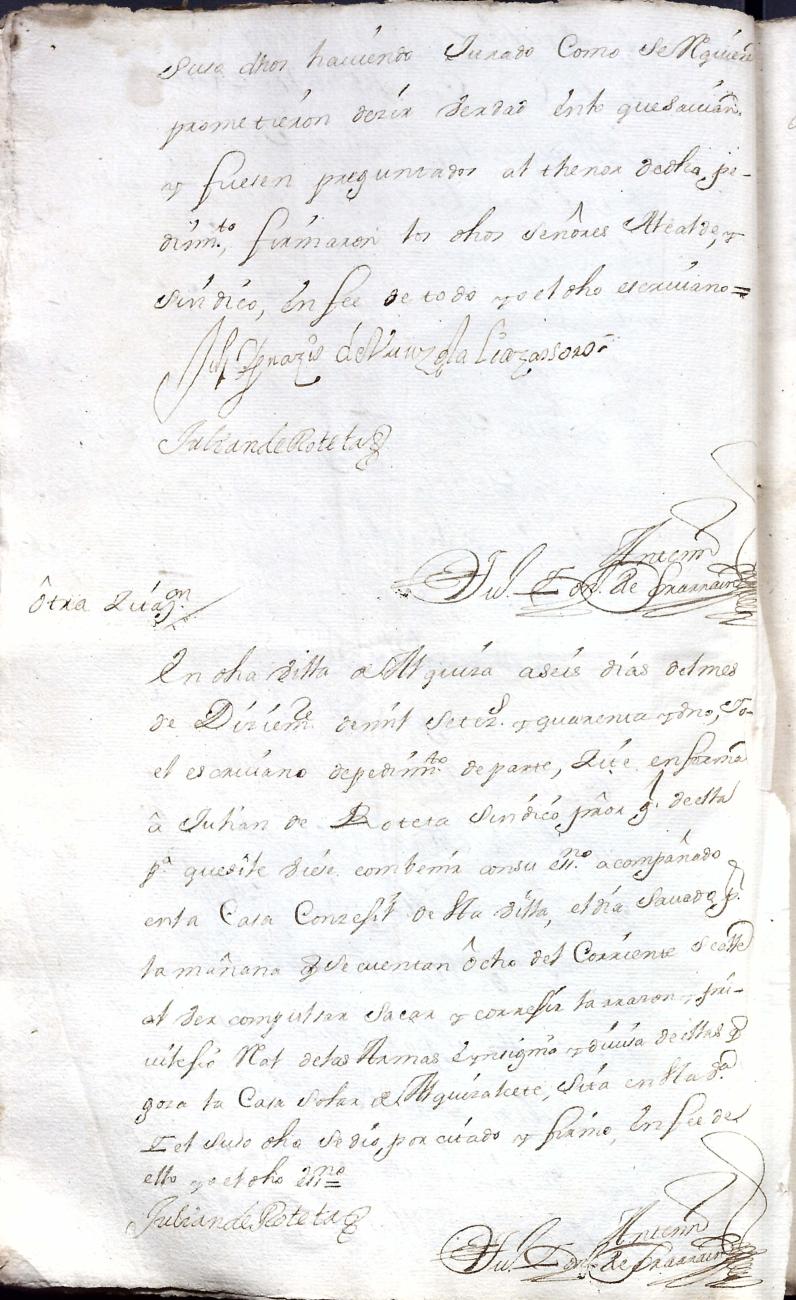 Suso dhos haviendo Jurado Como se Rquiere
prometieron dezir verdad en lo que savian
y fuesen preguntados al thenor de dho pe-
dimto, firmaron los dhos señores Alcalde, y
sindico, En fee de todo yo el dho escrivano=
Ignazio de
Julian de Roteta
Antemi
ôtra Zitaon
En dha villa de Alquiza a seis dias del mes
de Diziemre de mil Setezs y quarenta y uno, Yo
el escrivano de pedimto de parte, Zite en forma
â Julian de Roteta Sindico pror gl de ella
pa que si le diese combenir con su essno acompañado
en la Casa Conzejil de dha villa, el dia Savado pr
la mañana q se cuentan ôcho del Corriente se alle
al ver compulsar sacar y correjir la rrazon, y pri-
vilejio Rl de las Armas Ynsignio y divisa de ellas q
goza la Casa Solar de Alquizalete, sita en dha va
Y el suso dho se dio, por citado y firmo, En fee de
ello yo el dho essno=
Julian de Roteta
Antemi